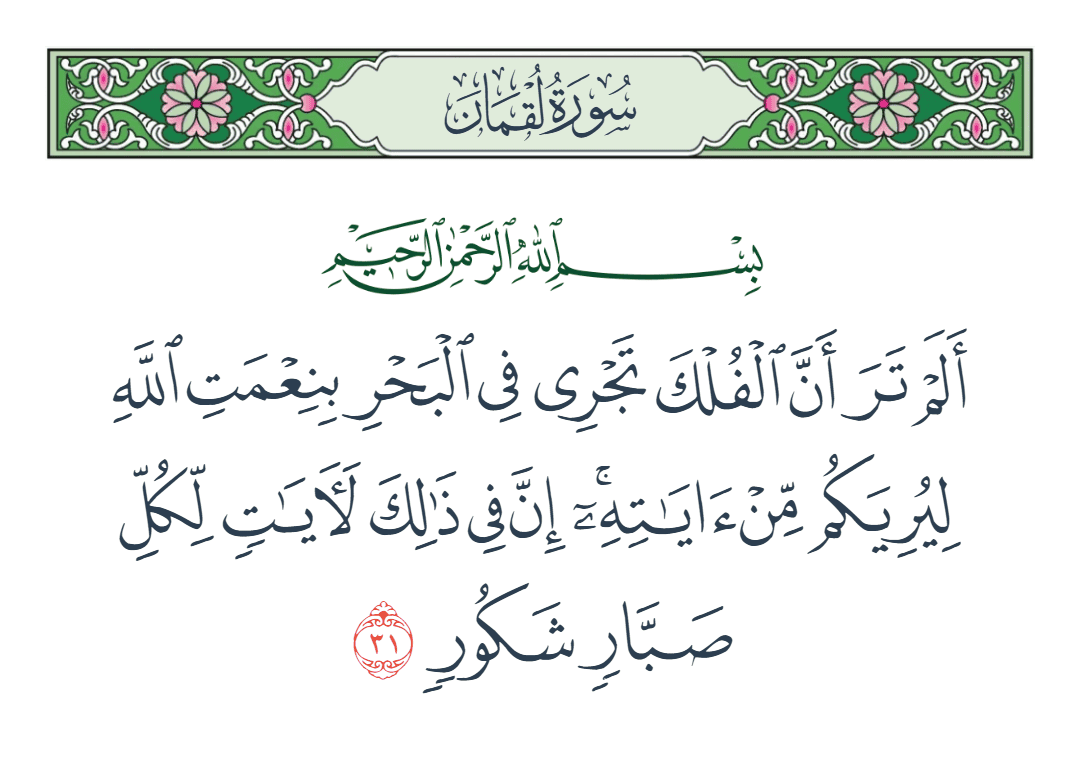 سُورَةُ لُقْمَان
بِسْمِ ٱللَّهِ ٱلرَّحْمَٰنِ ٱلرَّحِيمِ
أَلَمْ تَرَ أَنَّ ٱلْفُلْكَ تَجْرِى فِى ٱلْبَحْرِ بِنِعْمَتِ ٱللَّهِ
لِيُرِيَكُم مِّنْ ءَايَـٰتِهِۦٓ ۚ إِنَّ فِى ذَٰلِكَ لَـَٔايَـٰتٍ لِّكُلِّ
صَبَّارٍ شَكُورٍ ٣١